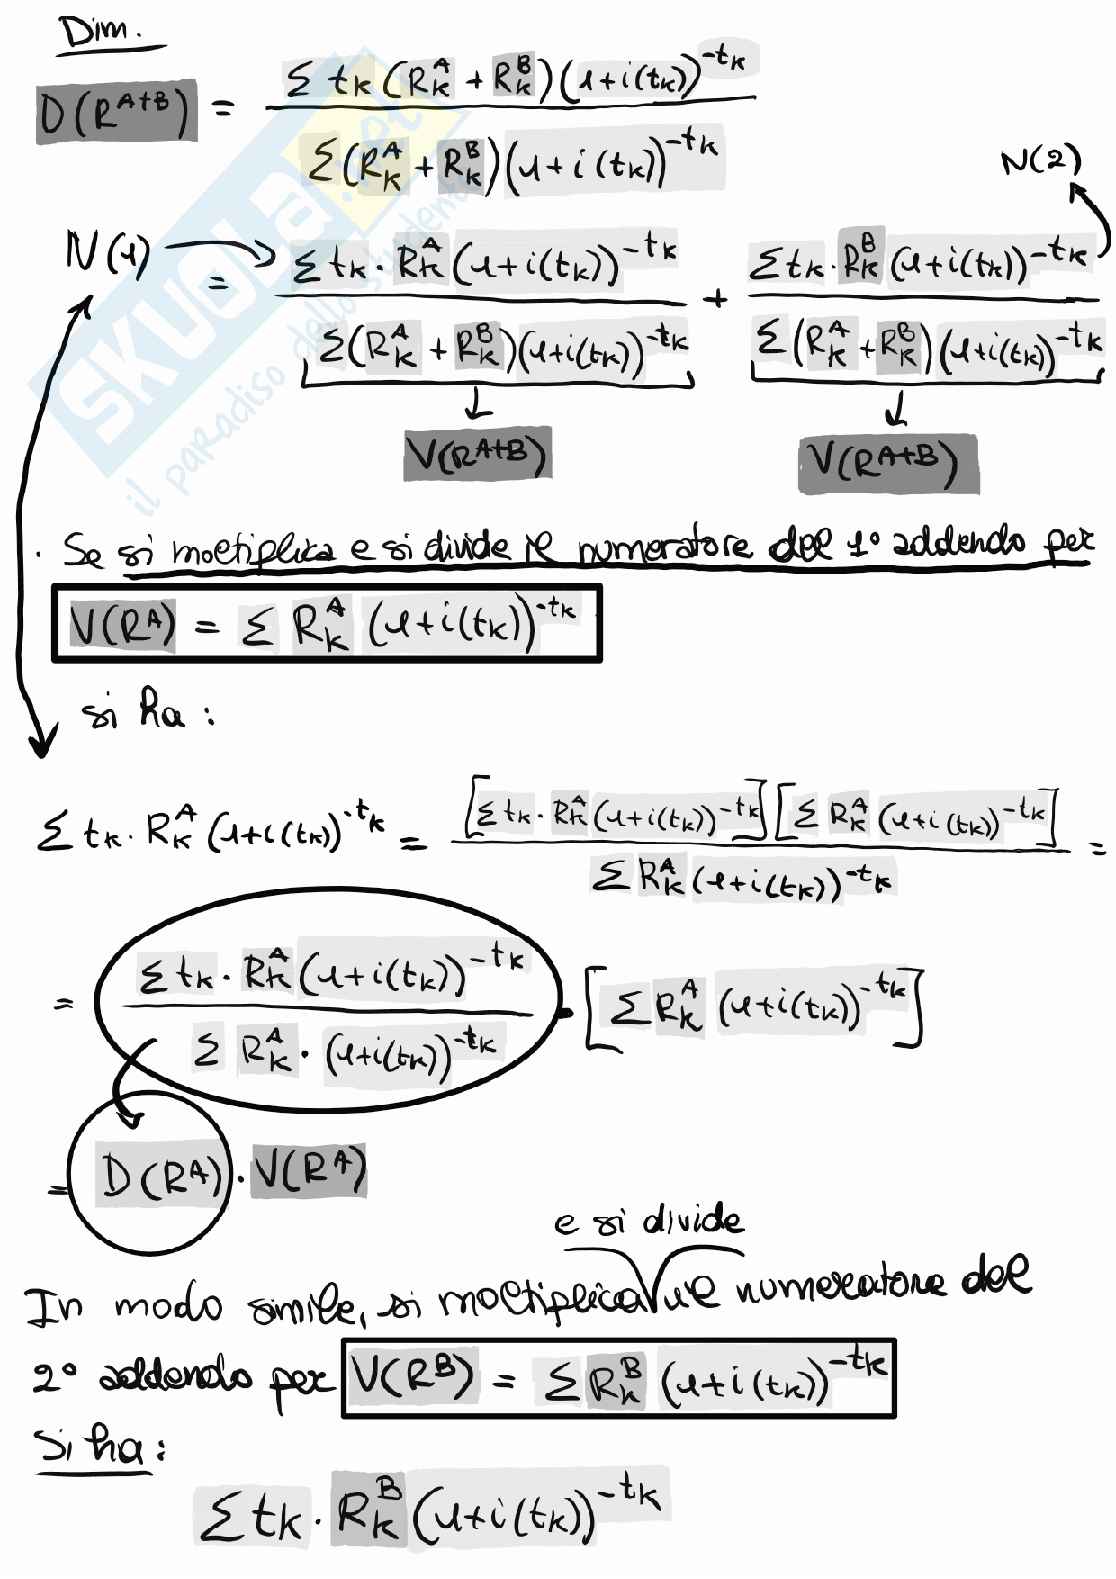 Dim.
D(R^{A+B}) = \frac{Σ t_k (R_k^A + R_k^B)(1+i(t_k))^{-t_k}}{Σ (R_k^A + R_k^B)(1+i(t_k))^{-t_k}}
N(2)
N(1) = \frac{Σ t_k · R_k^A (1+i(t_k))^{-t_k}}{Σ (R_k^A + R_k^B)(1+i(t_k))^{-t_k}} + \frac{Σ t_k · R_k^B (1+i(t_k))^{-t_k}}{Σ (R_k^A + R_k^B)(1+i(t_k))^{-t_k}}
V(R^{A+B}) V(R^{A+B})
· Se si moltiplica e si divide il numeratore del 1° addendo per
V(R^A) = Σ R_k^A (1+i(t_k))^{-t_k}
si ha:
Σ t_k · R_k^A (1+i(t_k))^{-t_k} = \frac{[Σ t_k · R_k^A (1+i(t_k))^{-t_k}] [Σ R_k^A (1+i(t_k))^{-t_k}]}{Σ R_k^A (1+i(t_k))^{-t_k}} =
= \frac{Σ t_k · R_k^A (1+i(t_k))^{-t_k}}{Σ R_k^A · (1+i(t_k))^{-t_k}} · [Σ R_k^A (1+i(t_k))^{-t_k}]
= D(R^A) · V(R^A)
e si divide
In modo simile, si moltiplica il numeratore del
2° addendo per V(R^B) = Σ R_k^B (1+i(t_k))^{-t_k}
Si ha:
Σ t_k · R_k^B (1+i(t_k))^{-t_k}
SKUOLA.net
il paradiso dello studente